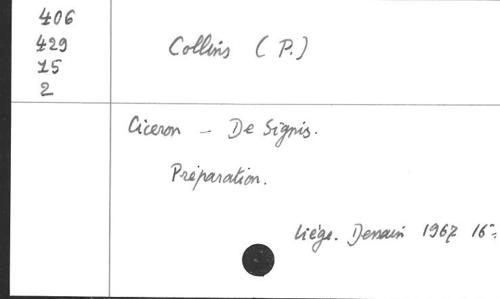 406
429
15
2
Collins (P.)
Ciceron - De Signis.
Préparation.
Liège. Dessain 1967 16°.